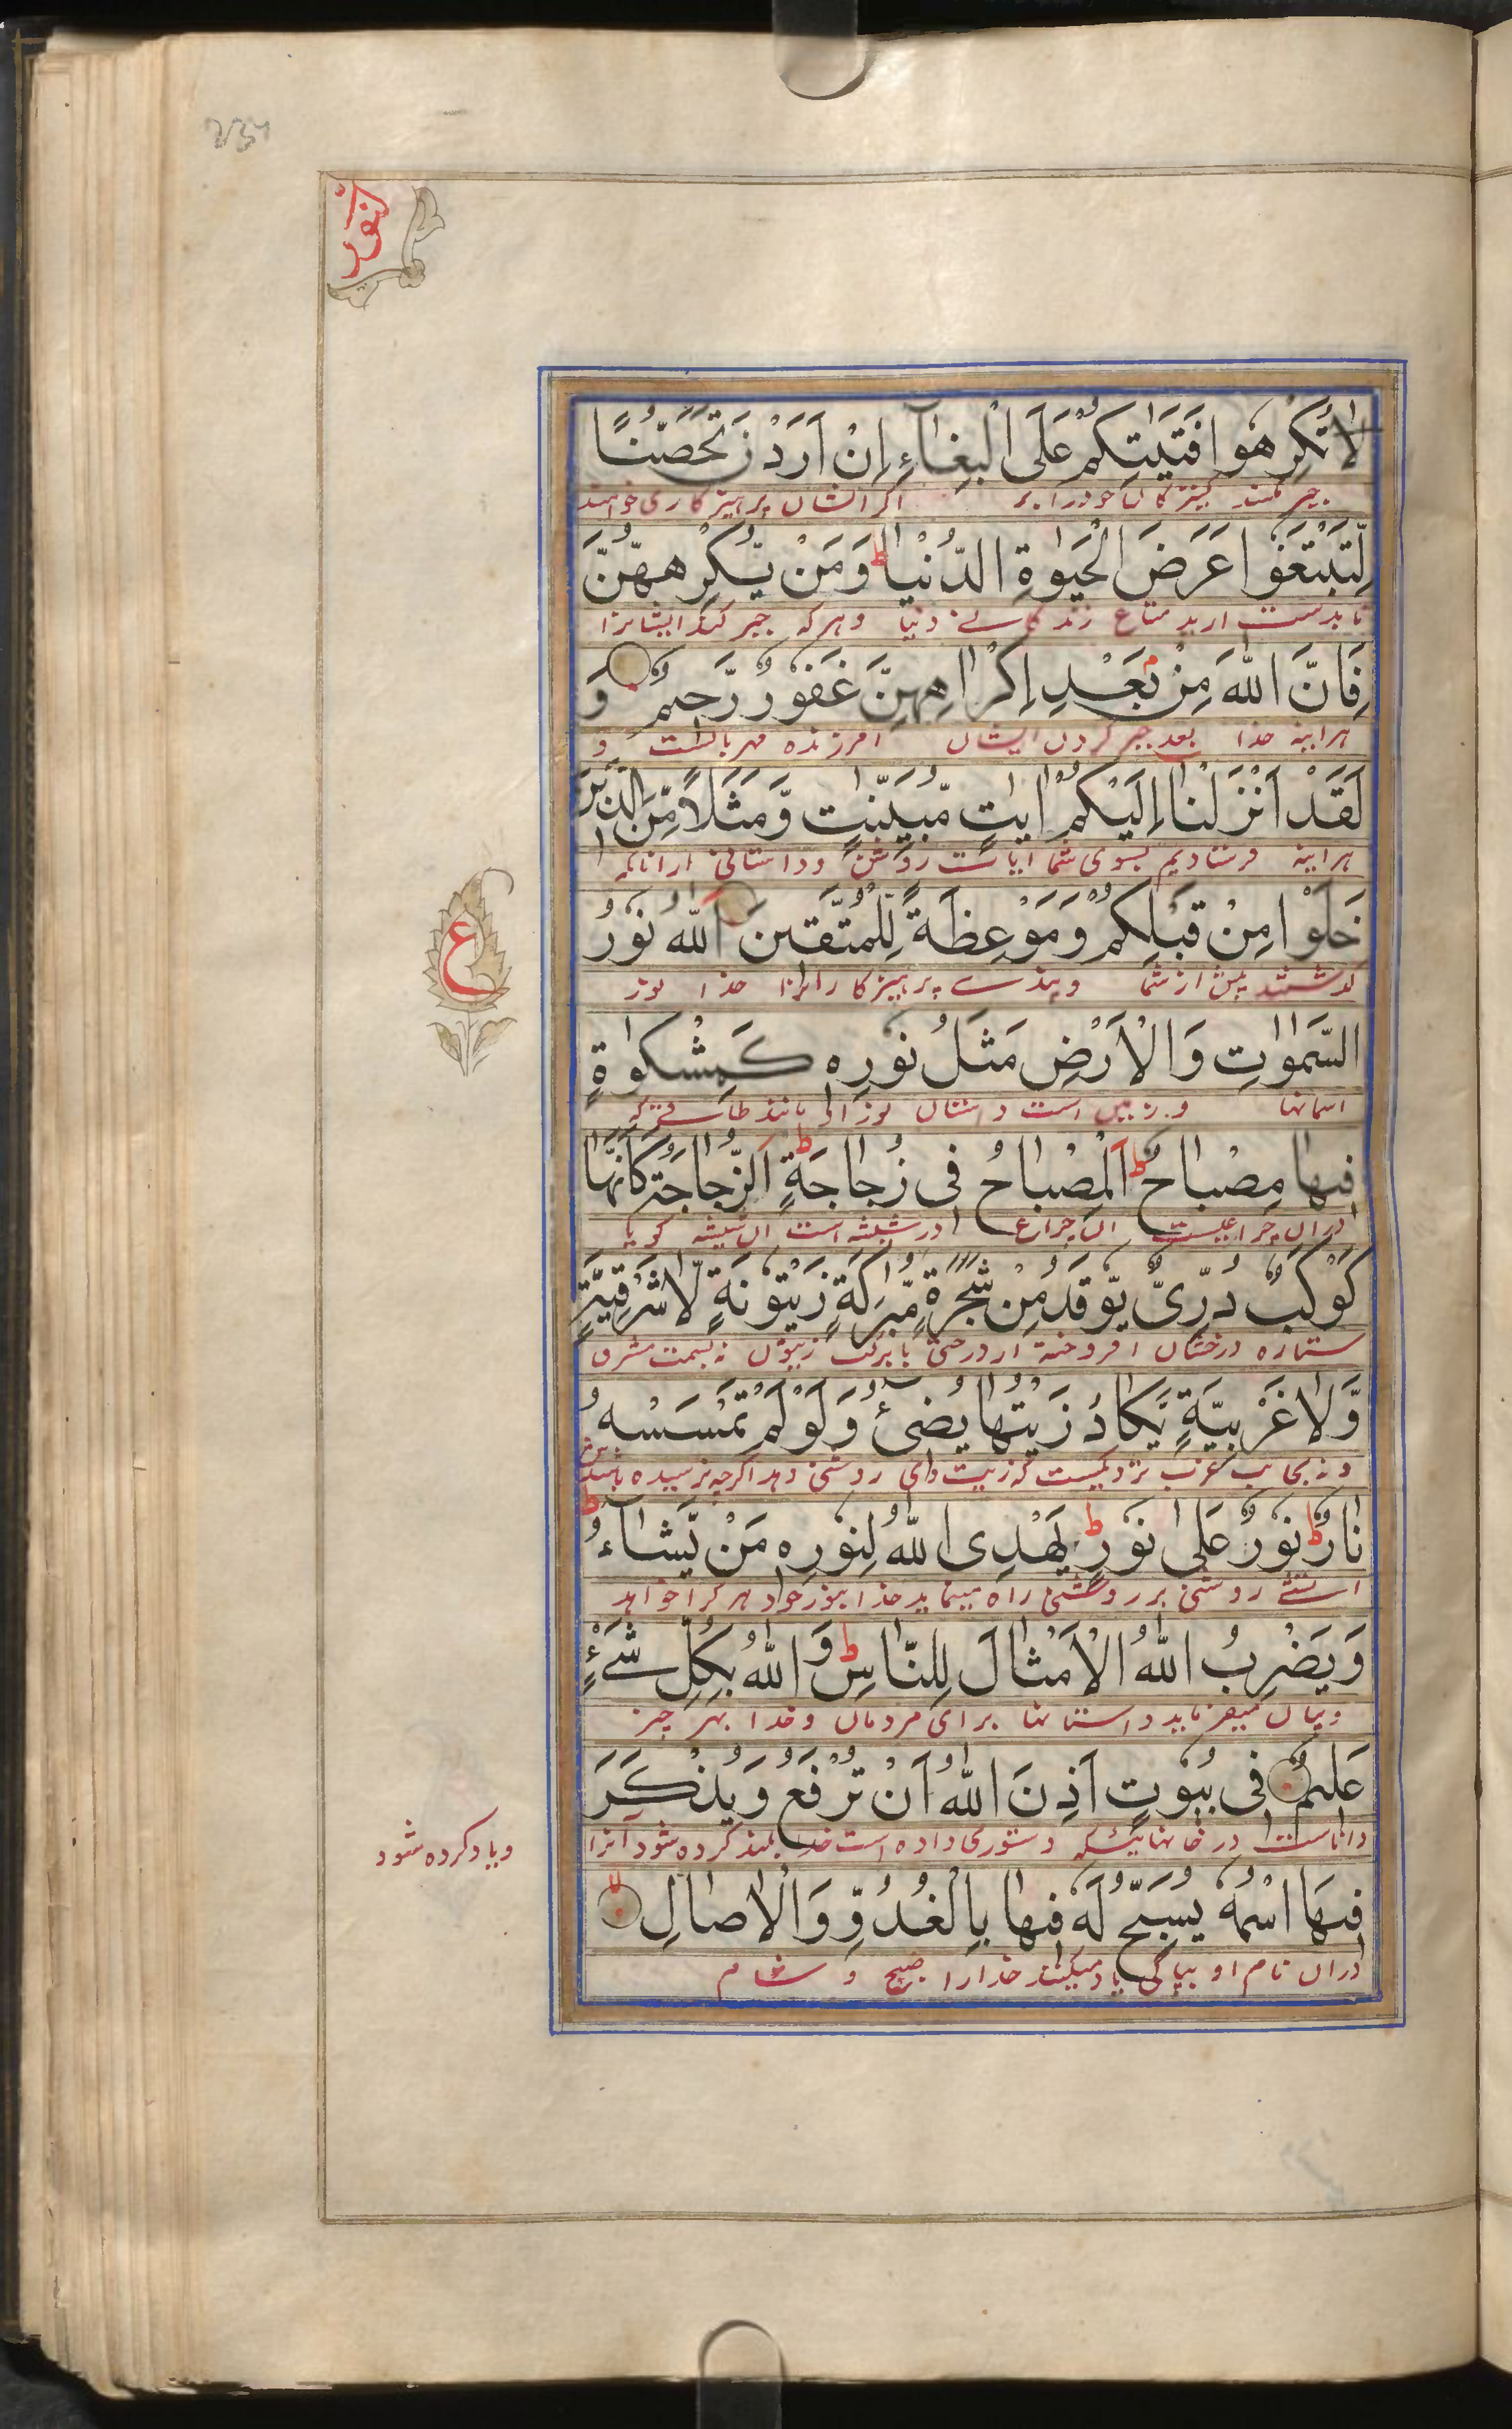 234
النور
لَا تُكْرِهُوا فَتَيٰتِكُمْ عَلَى الْبِغَآءِ اِنْ اَرَدْنَ تَحَصُّنًا
جبر مکنید کنیزکان خود را بر اگر ایشان پرهیزکاری خواهند
لِّتَبْتَغُوا عَرَضَ الْحَيٰوةِ الدُّنْيَا ط وَمَنْ يُّكْرِهْهُّنَّ
تا بدست ارید متاع زندگانی دنیا و هر که جبر کند ایشانرا
فَاِنَّ اللّٰهَ مِنْۢ بَعْدِ اِكْرَاهِهِنَّ غَفُوْرٌ رَّحِيْمٌ وَ
هراینه خدا بعد جبر کردن ایشان امرزنده مهربانست و
لَقَدْ اَنْزَلْنَا اِلَيْكُمْ اٰيٰتٍ مُّبَيِّنٰتٍ وَّمَثَلًا مِّنَ الَّذِيْنَ
هراینه فرستادیم بسوی شما ایات روشن و داستانی از انانکه
خَلَوْا مِنْ قَبْلِكُمْ وَمَوْعِظَةً لِّلْمُتَّقِيْنَ اَللّٰهُ نُوْرُ
گذشتند پیش از شما و پندے پرهیزکارانرا خدا نور
ع
السَّمٰوٰتِ وَالْاَرْضِ مَثَلُ نُوْرِهٖ كَمِشْكٰوةٍ
اسمانها و زمین است داستان نور او مانند طاقے که
فِيْهَا مِصْبَاحٌ ط اَلْمِصْبَاحُ فِيْ زُجَاجَةٍ ط اَلزُّجَاجَةُ كَاَنَّهَا
دران چراغیست ان چراغ در شیشه است ان شیشه گویا
كَوْكَبٌ دُرِّيٌّ يُّوْقَدُ مِنْ شَجَرَةٍ مُّبٰرَكَةٍ زَيْتُوْنَةٍ لَّا شَرْقِيَّةٍ
ستاره درخشان افروخته از درختی با برکت زیتون نه بسمت مشرق
وَّلَا غَرْبِيَّةٍ يَّكَادُ زَيْتُهَا يُضِيْٓءُ وَلَوْ لَمْ تَمْسَسْهُ
و نه بجانب غرب نزدیکست که زیت وای روشنی دهد اگرچه نرسیده باشد
نَارٌ ط نُوْرٌ عَلٰى نُوْرٍ ط يَهْدِى اللّٰهُ لِنُوْرِهٖ مَنْ يَّشَآءُ ط
اتشے روشنی بر روشنی راه مینماید خدا بنور خود هر کرا خواهد
وَيَضْرِبُ اللّٰهُ الْاَمْثَالَ لِلنَّاسِ ط وَاللّٰهُ بِكُلِّ شَيْءٍ
و بیان میفرماید داستانها برای مردمان و خدا بهر چیز
عَلِيْمٌ فِيْ بُيُوْتٍ اَذِنَ اللّٰهُ اَنْ تُرْفَعَ وَيُذْكَرَ
داناست در خانهائیکه دستوری داده است خدا بلند کرده شود آنرا
و یاد کرده شود
فِيْهَا اسْمُهٗ يُسَبِّحُ لَهٗ فِيْهَا بِالْغُدُوِّ وَالْاٰصَالِ
دران نام او بپاکی یاد میکنند خدا را صبح و شام